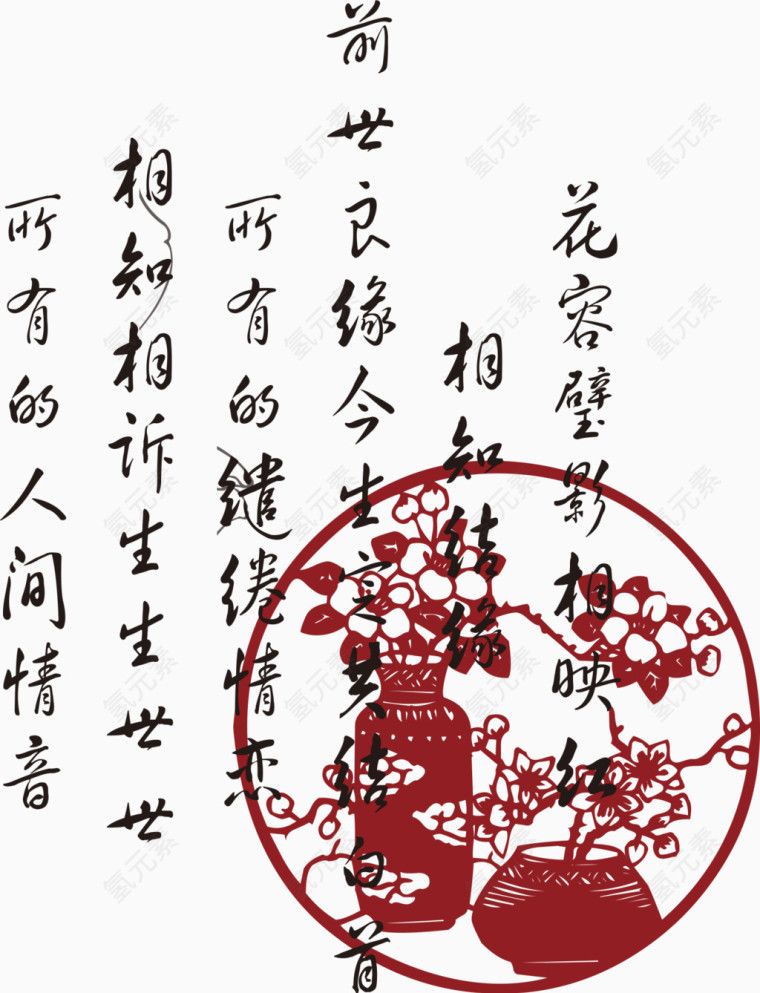 花容璧影相映红
相知结缘
前世良缘今生定共结白首
所有的缱绻情恋
相知相诉生生世世
所有的人间情音
氢元素